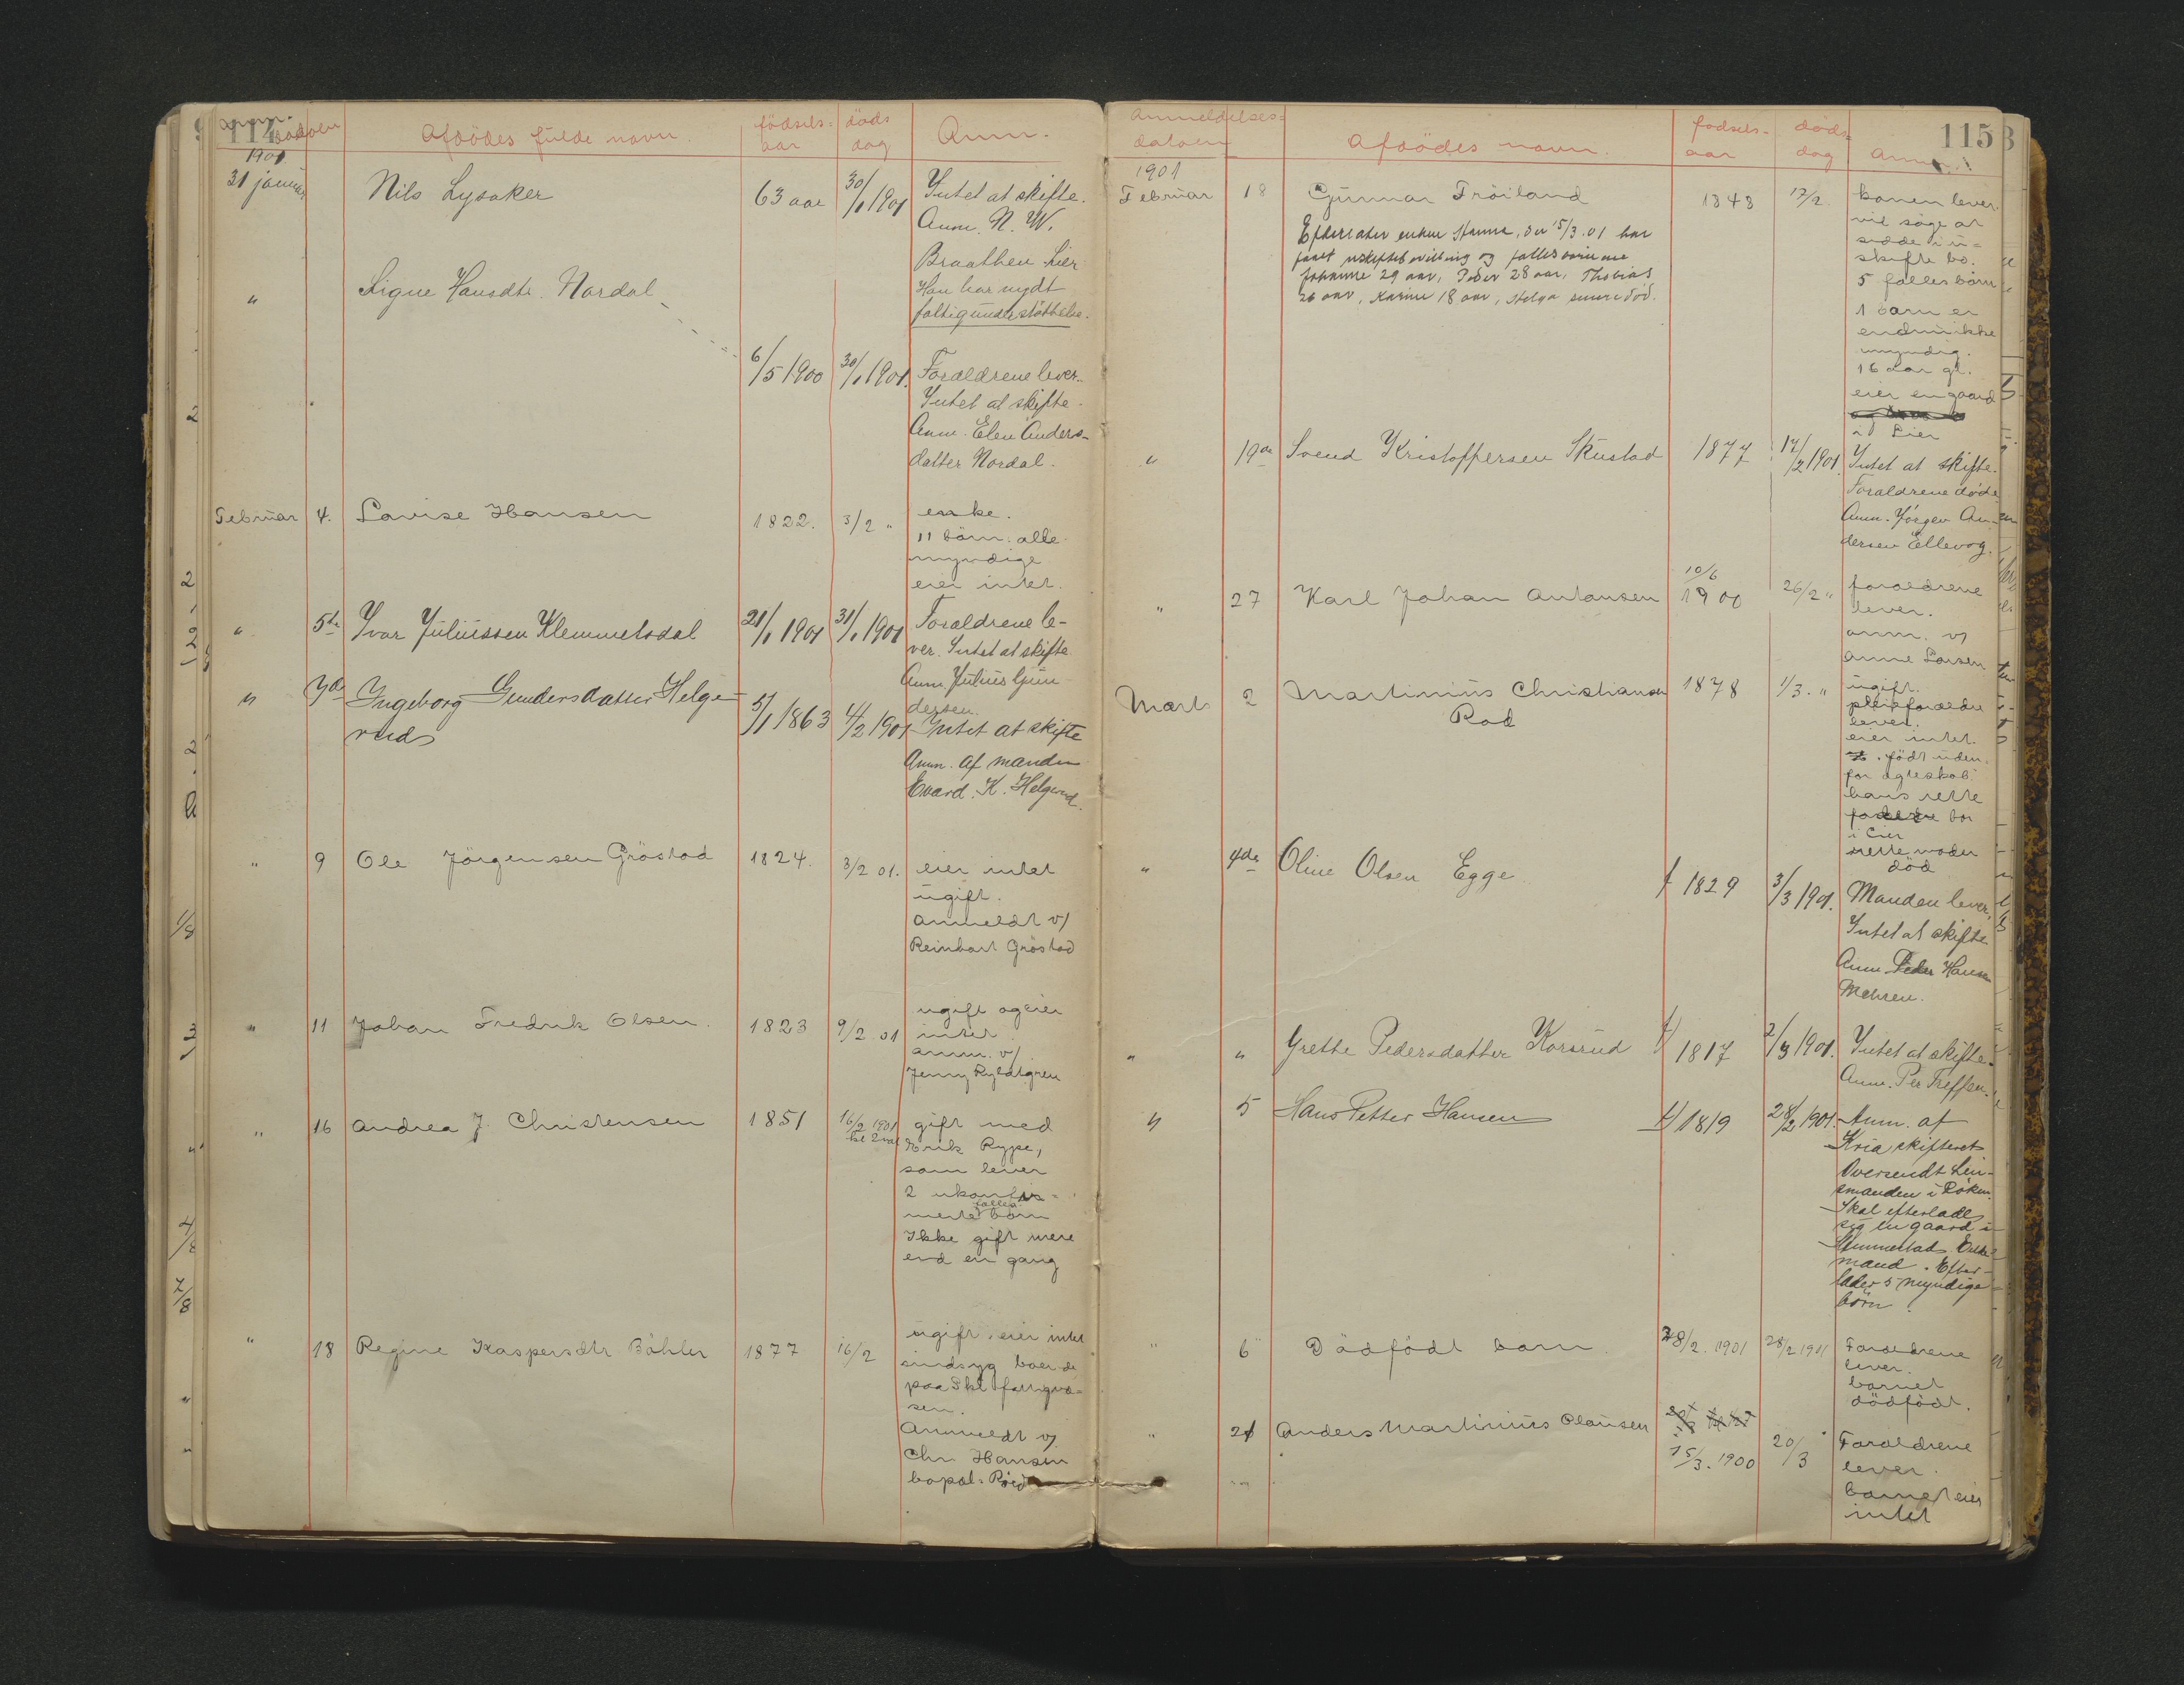 114
datoen
Afdödes fulde navn
födsels-
aar
döds
dag
Anm.
1901
31 januar
Nils Lysaker
63 aar
30/1 1901
Intet at skifte.
Anm. N. W.
Braathen Lier
Han har nydt
fattigunderstöttelse.
"
Signe Hansdtr. Nordal
6/5 1900
30/1 1901.
Foraeldrene lever.
Intet at skifte.
Anm. Elen Anders-
datter Nordal.
Februar
4.
Lovise Hansen
1822.
3/2 "
enke.
11 börn. alle
myndige
eier intet.
"
5te
Ivar Juliussen Klemmetsdal
21/1 1901
31/1 1901
Foraeldrene le-
ver. Intet at skifte
Anm. Julius Gun-
dersen.
"
7de
Ingeborg Gundersdatter Helge-
rud
5/1 1863
4/2 1901
Intet at skifte
Anm. af manden
Edvard. K. Helgerud.
"
9
Ole Jörgensen Gröstad
1824.
3/2 01.
eier intet
ugift.
anmeldt v/
Reinhart Gröstad
"
11
Johan Fredrik Olsen.
1823
9/2 01
ugift og eier
intet.
anm. v/
Jenny Ryldtgren
"
16
Andrea J. Christensen
1851
16/2 1901
kl 2
gift med
Erik Rype,
som lever
2 ukonfir-
fælles
merte börn
Ikke gift mere
end en gang
"
18
Regine Kaspersdtr Böhler
1877
16/2
ugift. eier intet
sindsyg boende
paa
sen.
Anmeldt v/
Chr. Hansen
bopæl:
115
Anmeldelses-
datoen
Afdödes navn.
födsels-
aar
döds
dag
Anm.
1901
Februar
18
Gunnar Fröiland
1848
17/2
konen lever.
vil söge at
sidde i u-
skifte bo.
5 fælles börn
1 barn er
endnu ikke
myndig.
16 aar gl.
eier en gaard
i Lier
Efterlater enken Hanna, der 15/3.01 har
faaet uskiftebevilling og fælles börnene
Johanne 29 aar, Peder 28 aar, Thobias
26 aar, Karine 18 aar, Helga senere död.
"
19de
Svend Kristoffersen Skustad
1877
17/2 1901.
Intet at skifte.
Foraldrene döde
Anm. Jörgen An-
dersen Ellevog.
"
27
Karl Johan Antonsen
10/6
1900
26/2 "
foraeldrene
lever.
anm. v/
Anne Larsen
Marts
2
Martinius Christiansen
Rod
1878
1/3. "
ugift.
pleieforaeldre
lever.
eier intet.
födt uden-
for ægteskab.
hans rette
bor
i Lier
rette moder
död
"
4de
Oline Olsen Egge
f 1829
3/3 1901.
Manden lever,
Intet at skifte
Anm. Peder Hansen
Mehren.
"
"
Grethe Pedersdatter Korsrud
f/ 1817
2/3 1901.
Intet at skifte.
Anm. Per Treffen.
"
5
Hans Petter Hansen
f/ 1819
28/2 1901.
Anm. af
Kria skifteret
Oversendt Len-
smanden i Röken.
Skal efterlade
sig en gaard i
Enke-
mand. Efter-
lader 5 myndige
börn.
"
6
Dödfödt barn.
28/2. 1901
28/2 1901
Foraeldrene
lever.
barnet
dödfödt.
"
21
Anders Martinius Olausen
15/3. 1900
20/3
Foraeldrene
lever.
barnet eier
intet